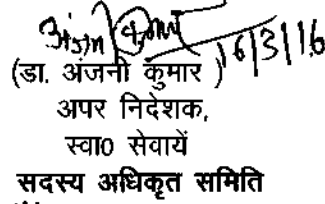 अंजनी कुमार 16/3/16
(डा. अंजनी कुमार )
अपर निदेशक,
स्वा0 सेवायें
सदस्य अधिकृत समिति